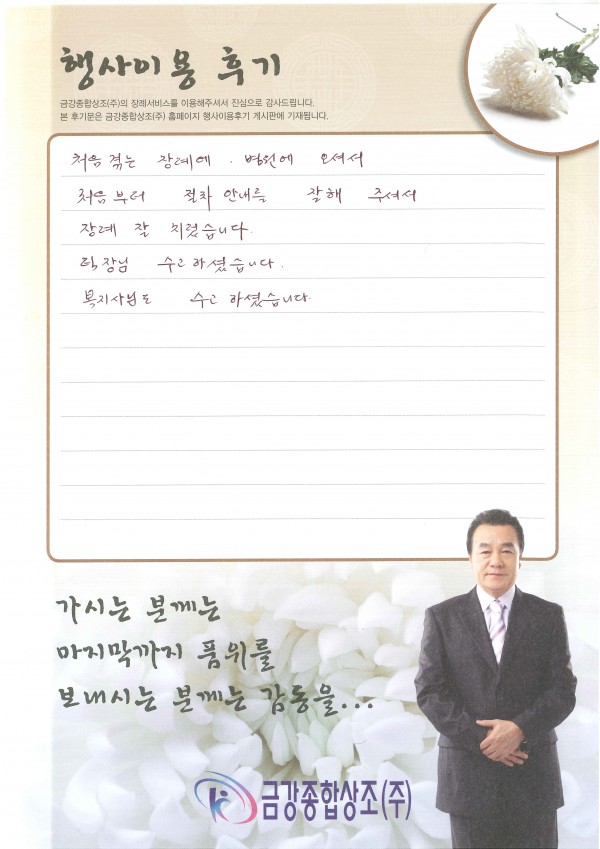 행사이용 후기
금강종합상조(주)의 장례서비스를 이용해주셔서 진심으로 감사드립니다.
본 후기문은 금강종합상조(주) 홈페이지 행사이용후기 게시판에 기재됩니다.
처음 겪는 장례에. 병원에 오셔서
처음부터 절차 안내를 잘해 주셔서
장례 잘 치렀습니다.
팀장님 수고하셨습니다.
복지사님도 수고하셨습니다.
가시는 분께는
마지막까지 품위를
보내시는 분께는 감동을...
금강종합상조(주)